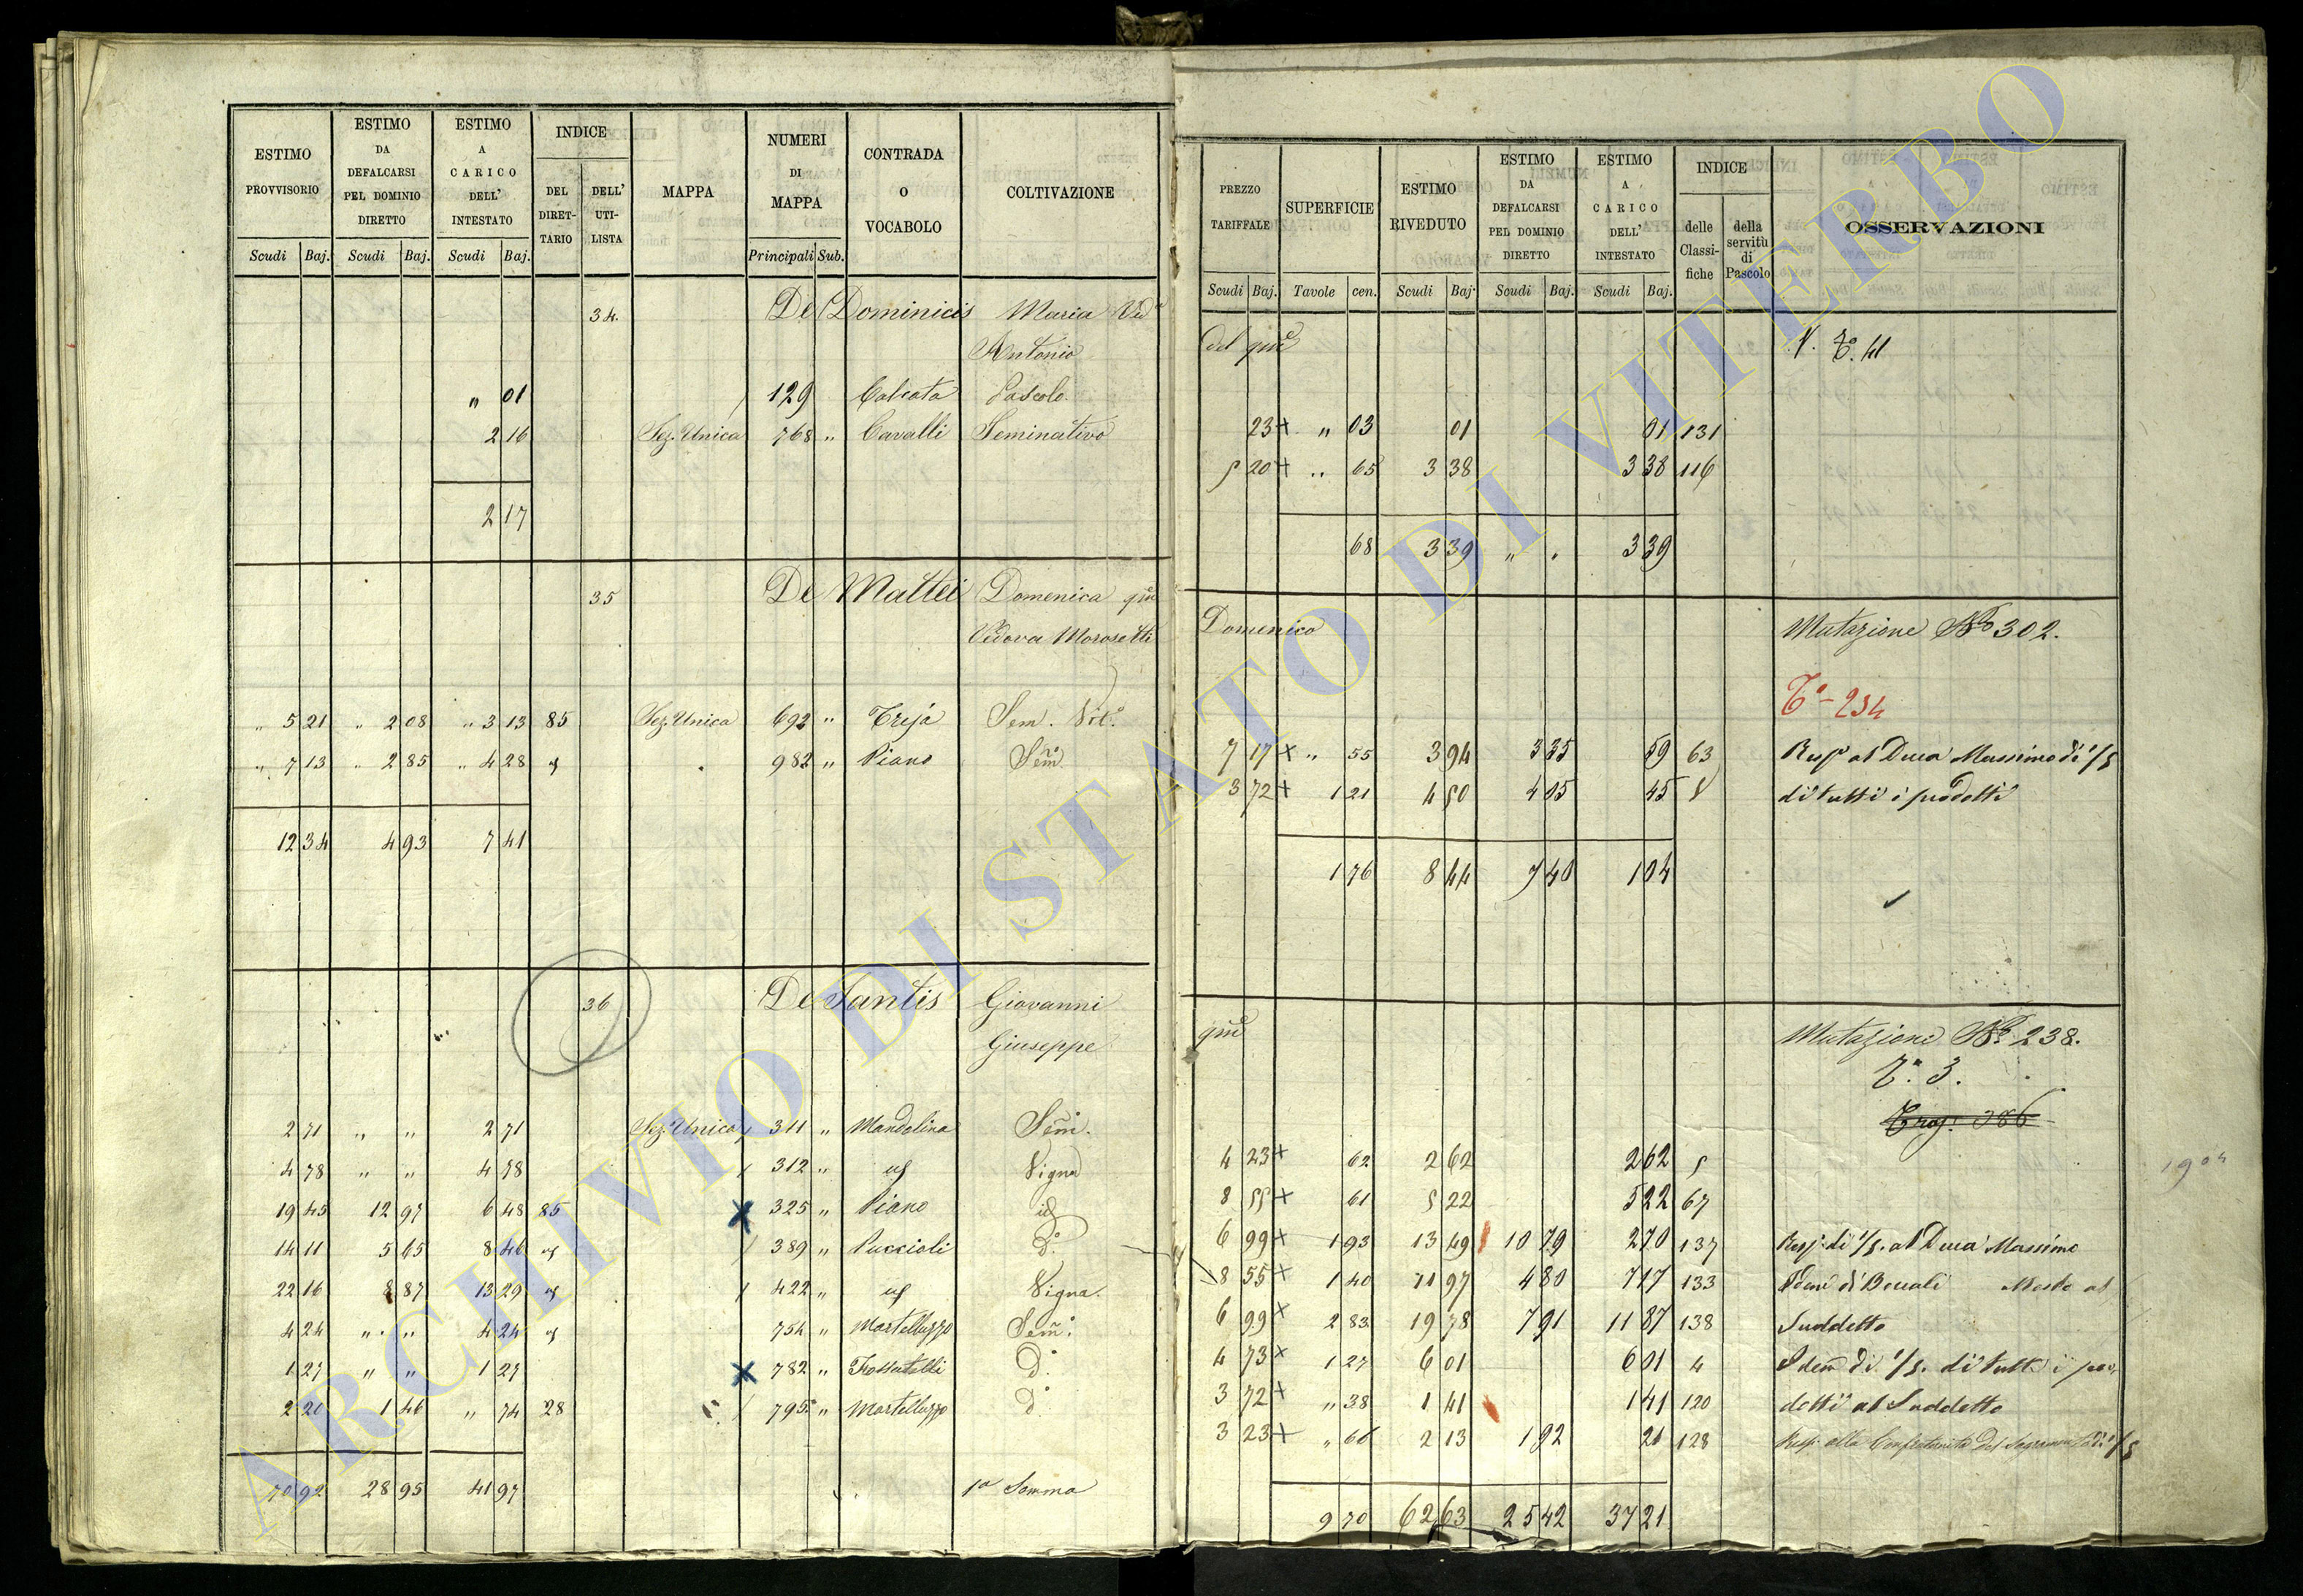 ESTIMO PROVVISORIO | ESTIMO DA DEFALCARSI PEL DOMINIO DIRETTO | ESTIMO A CARICO DELL' INTESTATO | INDICE | MAPPA | NUMERI DI MAPPA | CONTRADA O VOCABOLO | COLTIVAZIONE
DEL DIRETTARIO | DELL' UTILISTA
Scudi | Baj. | Scudi | Baj. | Scudi | Baj. | Principali | Sub.
34. De Dominicis Maria Ved.a
Antonio
" 01 129 Calcata Pascolo
2 16 Sez. Unica 768 " Cavalli Seminativo
2 17
35 De Mattei Domenica qm
Vedova Morosetti
" 5 21 " 2 08 " 3 13 85 Sez. Unica 692 " Treja Sem. Vit.o
" 7 13 " 2 85 " 4 28 " 982 " Piano Sem.o
12 34 4 93 7 41
36 De Santis Giovanni
Giuseppe
2 71 " " 2 71 Sez. Unica 311 " Mandolina Sem.o
4 78 " " 4 78 312 " id Vigna
19 45 12 97 6 48 85 325 " Piano id
14 11 5 65 8 46 id 389 " Puccioli D.o
22 16 8 87 13 29 id 422 " id Vigna
4 24 " " 4 24 id 754 " Martelluzzo Sem.o
1 27 " " 1 27 782 " Fossatelli D.o
2 20 1 46 " 74 28 795 " Martelluzzo D.o
70 92 28 95 41 97 1a Somma
PREZZO TARIFFALE | SUPERFICIE | ESTIMO RIVEDUTO | ESTIMO DA DEFALCARSI PEL DOMINIO DIRETTO | ESTIMO A CARICO DELL' INTESTATO | INDICE | OSSERVAZIONI
delle Classifiche | della servitù di Pascolo
Scudi | Baj. | Tavole | cen. | Scudi | Baj. | Scudi | Baj. | Scudi | Baj.
del qm V. T.o 41
23 + " 03 01 01 131
5 20 + " 65 3 38 3 38 116
68 3 39 " " 3 39
Domenico Mutazione No 302.
T.o - 234
7 17 x " 55 3 94 3 35 59 63 Resp al Duca Massimo di 1/5
3 72 + 1 21 4 50 4 05 45 5 di tutti i prodotti
1 76 8 44 7 40 1 04
qm Mutazione No 238.
T.o 3.
4 23 + 62 2 62 2 62 5
1904
8 55 + 61 5 22 5 22 67
6 99 + 1 93 13 49 10 79 2 70 137 Resp. di 1/5. al Duca Massimo
8 55 + 1 40 11 97 4 80 7 17 133 Idem di
6 99 x 2 83 19 78 7 91 11 87 138 Suddetto
4 73 x 1 27 6 01 6 01 4 Idem di 1/5. di tutti i pro
3 72 + " 38 1 41 1 41 120 dotti al Suddetto
3 23 + " 66 2 13 1 92 21 128 Resp. alla Confraternita del Sagramento di 1/5
9 70 62 63 25 42 37 21
ARCHIVIO DI STATO DI VITERBO